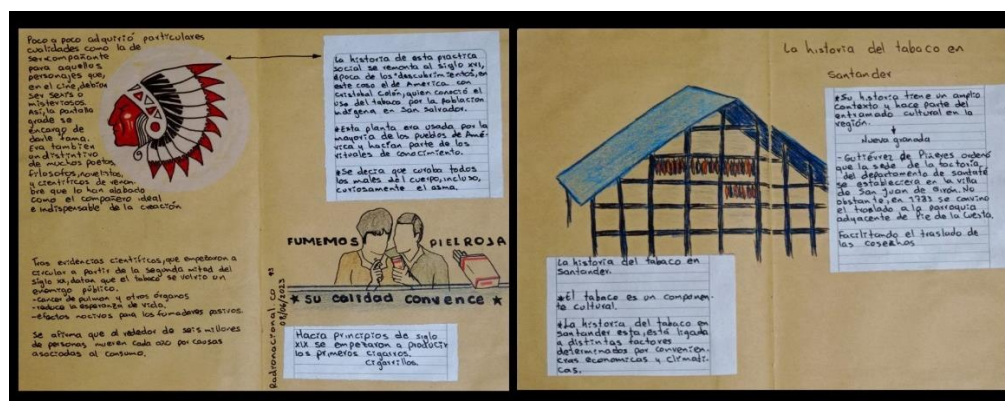 Poco a poco adquirió particulares
cualidades como la de
ser compañante
para aquellos
personajes que,
en el cine, debian
ser sexis o
misteriosos.
Asi, la pantalla
grade se
encargo de
darle fama.
Era tambien
un distintivo
de muchos poetas,
filosofos, novelistas,
y cientificos de renom-
bre que lo han alabado
como el compañero ideal
e indispensable de la creación.
Tras evidencias cientificas, que empezaron a
circular a partir de la segunda mitad del
siglo xx, datan que el tabaco se volvio un
enemigo público.
-cancer de pulmon y otros órganos
-reduce la esperanza de vida.
-efectos nocivos para los fumadores pasivos.
Se afirma que al rededor de seis millones
de personas mueren cada año por causas
asociadas al consumo.
La historia de esta practica
social se remonta al siglo xvi,
época de los "descubrimientos", en
este caso el de América con
Cristobal Colón, quien conoció el
uso del tabaco por la poblacion
indigena en San Salvador.
*Esta planta era usada por la
mayoria de los pueblos de Amé-
rica y hacian parte de los
rituales de conocimiento.
*Se decia que curaba todos
los males del cuerpo, incluso,
curiosamente el asma.
FUMEMOS PIELROJA
★ su calidad convence ★
Radronacional co
08/06/2023
Hacia principios de siglo
XIX se empezaron a producir
los primeros cigarros.
cigarrillos.
La historia del tabaco en
Santander
*Su historia tiene un amplio
contexto y hace parte del
entramado cultural en la
región.
Nueva granada
-Gutiérrez de Piñeyes ordenó
que la sede de la factoria,
del departamento de santafé
se establecera en la villa
de San Juan de Girón. No
obstante, en 1783 se convino
el traslado a la parroquia
adyacente de Pie de la Cuesta.
Facilitando el traslado de
las cosechas
La historia del tabaco en
Santander.
*El tabaco es un componen-
te cultural.
*La historia del tabaco en
santander esta, está ligada
a distintos factores
determinados por convenien-
cias economicas y climati-
cas.